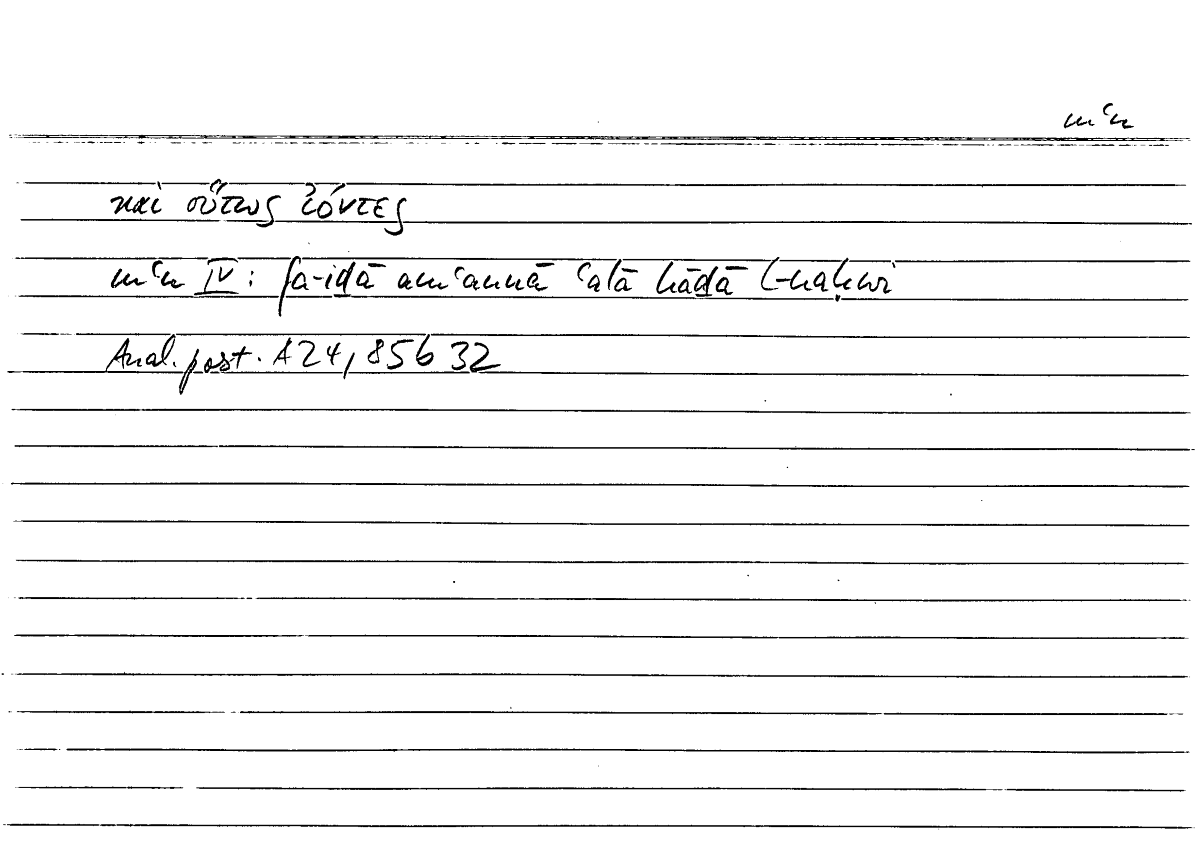 mʿn
καὶ οὕτως ἰόντες
mʿn IV: fa-iḏā amʿannā ʿalā hāḏā l-naḥwi
Anal. post. A 24, 85b 32